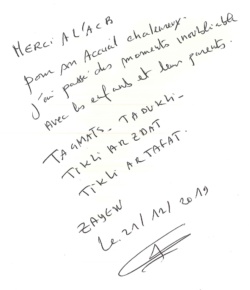 MERCI A L'ACB
pour son Accueil chaleureux.
j'ai passé des moments inoubliable
avec les enfants et leur parents.
TAGMATS- TADUKLI-
TIKLI AR ZDAT
TIKLI AR TAFAT.
ZAYEN
Le 21/12/2019